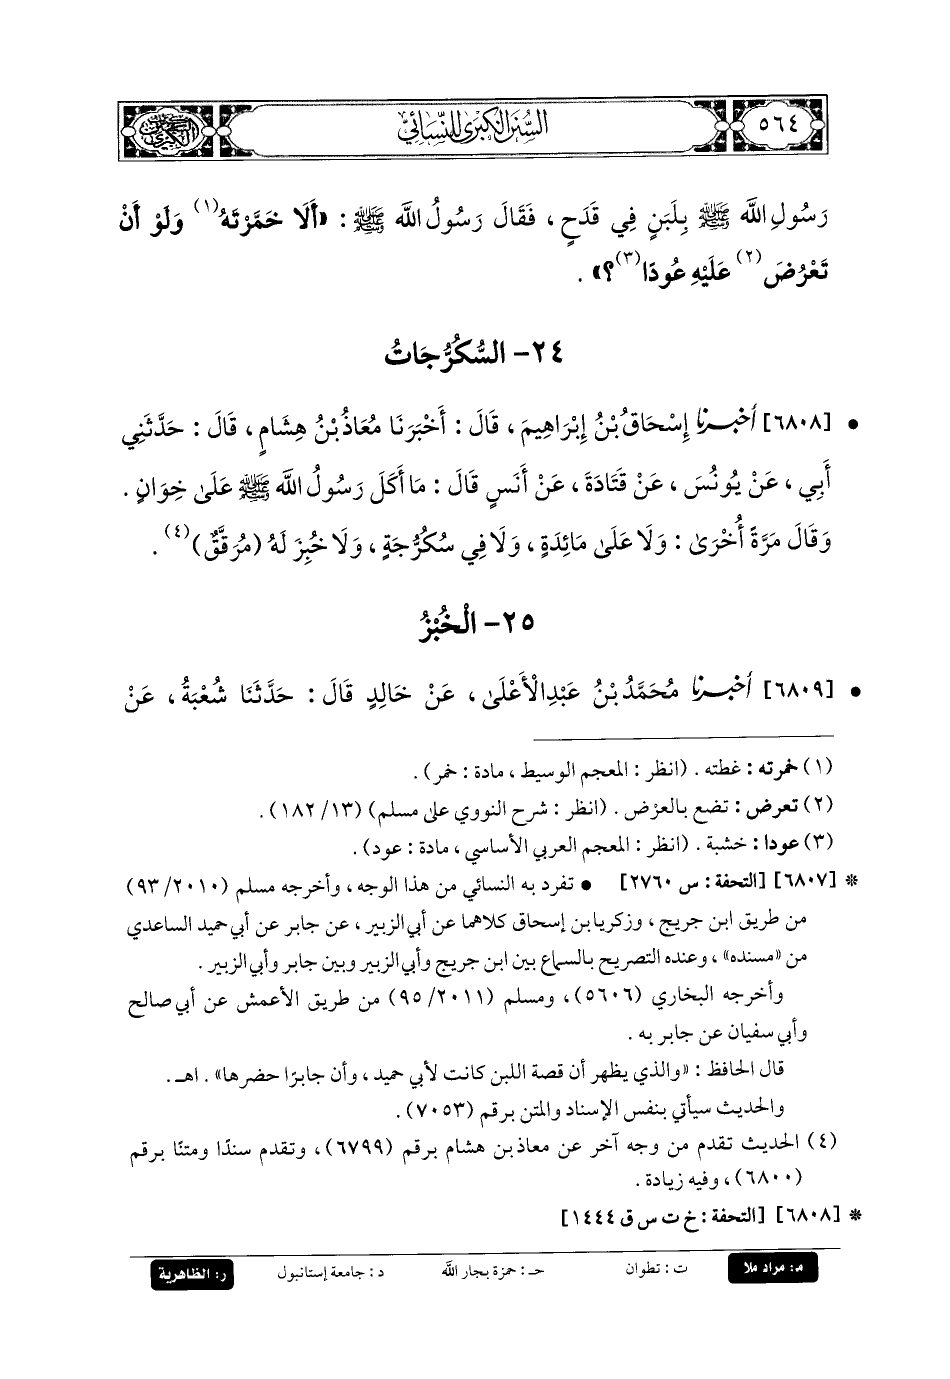 ٥٦٤
السنن الكبرى للنسائي
رَسُولِ اللَّه ﷺ بِلَبَنٍ فِي قَدَحٍ ، فَقَالَ رَسُولُ اللَّه ﷺ : «أَلَا خَمَّرْتَهُ(١) وَلَوْ أَنْ
تَعْرُضَ(٢) عَلَيْهِ عُودًا(٣)؟» .
٢٤- السُّكُرُّجَاتُ
• [٦٨٠٨] أخبرنا إِسْحَاقُ بْنُ إِبْرَاهِيمَ ، قَالَ : أَخْبَرَنَا مُعَاذُ بْنُ هِشَامٍ ، قَالَ : حَدَّثَنِي
أَبِي ، عَنْ يُونُسَ ، عَنْ قَتَادَةَ ، عَنْ أَنَسٍ قَالَ : مَا أَكَلَ رَسُولُ اللَّه ﷺ عَلَى خِوَانٍ .
وَقَالَ مَرَّةً أُخْرَى : وَلَا عَلَى مَائِدَةٍ ، وَلَا فِي سُكُرُّجَةٍ ، وَلَا خُبِزَ لَهُ (مُرَقَّقٌ)(٤) .
٢٥- الْخُبْزُ
• [٦٨٠٩] أخبرنا مُحَمَّدُ بْنُ عَبْدِ الْأَعْلَى ، عَنْ خَالِدٍ قَالَ : حَدَّثَنَا شُعْبَةُ ، عَنْ
(١) خمرته : غطته . (انظر : المعجم الوسيط ، مادة : خمر) .
(٢) تعرض : تضع بالعرْض . (انظر : شرح النووي على مسلم) (١٣/ ١٨٢) .
(٣) عودا : خشبة . (انظر : المعجم العربي الأساسي ، مادة : عود) .
* [٦٨٠٧] [التحفة : س ٢٧٦٠] • تفرد به النسائي من هذا الوجه ، وأخرجه مسلم (٢٠١٠/ ٩٣)
من طريق ابن جريج ، وزكريا بن إسحاق كلاهما عن أبي الزبير ، عن جابر عن أبي حميد الساعدي
من «مسنده» ، وعنده التصريح بالسماع بين ابن جريج وأبي الزبير وبين جابر وأبي الزبير .
وأخرجه البخاري (٥٦٠٦) ، ومسلم (٢٠١١/ ٩٥) من طريق الأعمش عن أبي صالح
وأبي سفيان عن جابر به .
قال الحافظ : «والذي يظهر أن قصة اللبن كانت لأبي حميد ، وأن جابرًا حضرها» . اهـ .
والحديث سيأتي بنفس الإسناد والمتن برقم (٧٠٥٣) .
(٤) الحديث تقدم من وجه آخر عن معاذ بن هشام برقم (٦٧٩٩) ، وتقدم سندًا ومتنًا برقم
(٦٨٠٠) ، وفيه زيادة .
* [٦٨٠٨] [التحفة : خ ت س ق ١٤٤٤]
م: مراد ملا ت : تطوان حـ : حمزة بجار اللَّه د : جامعة إستانبول ر: الظاهرية